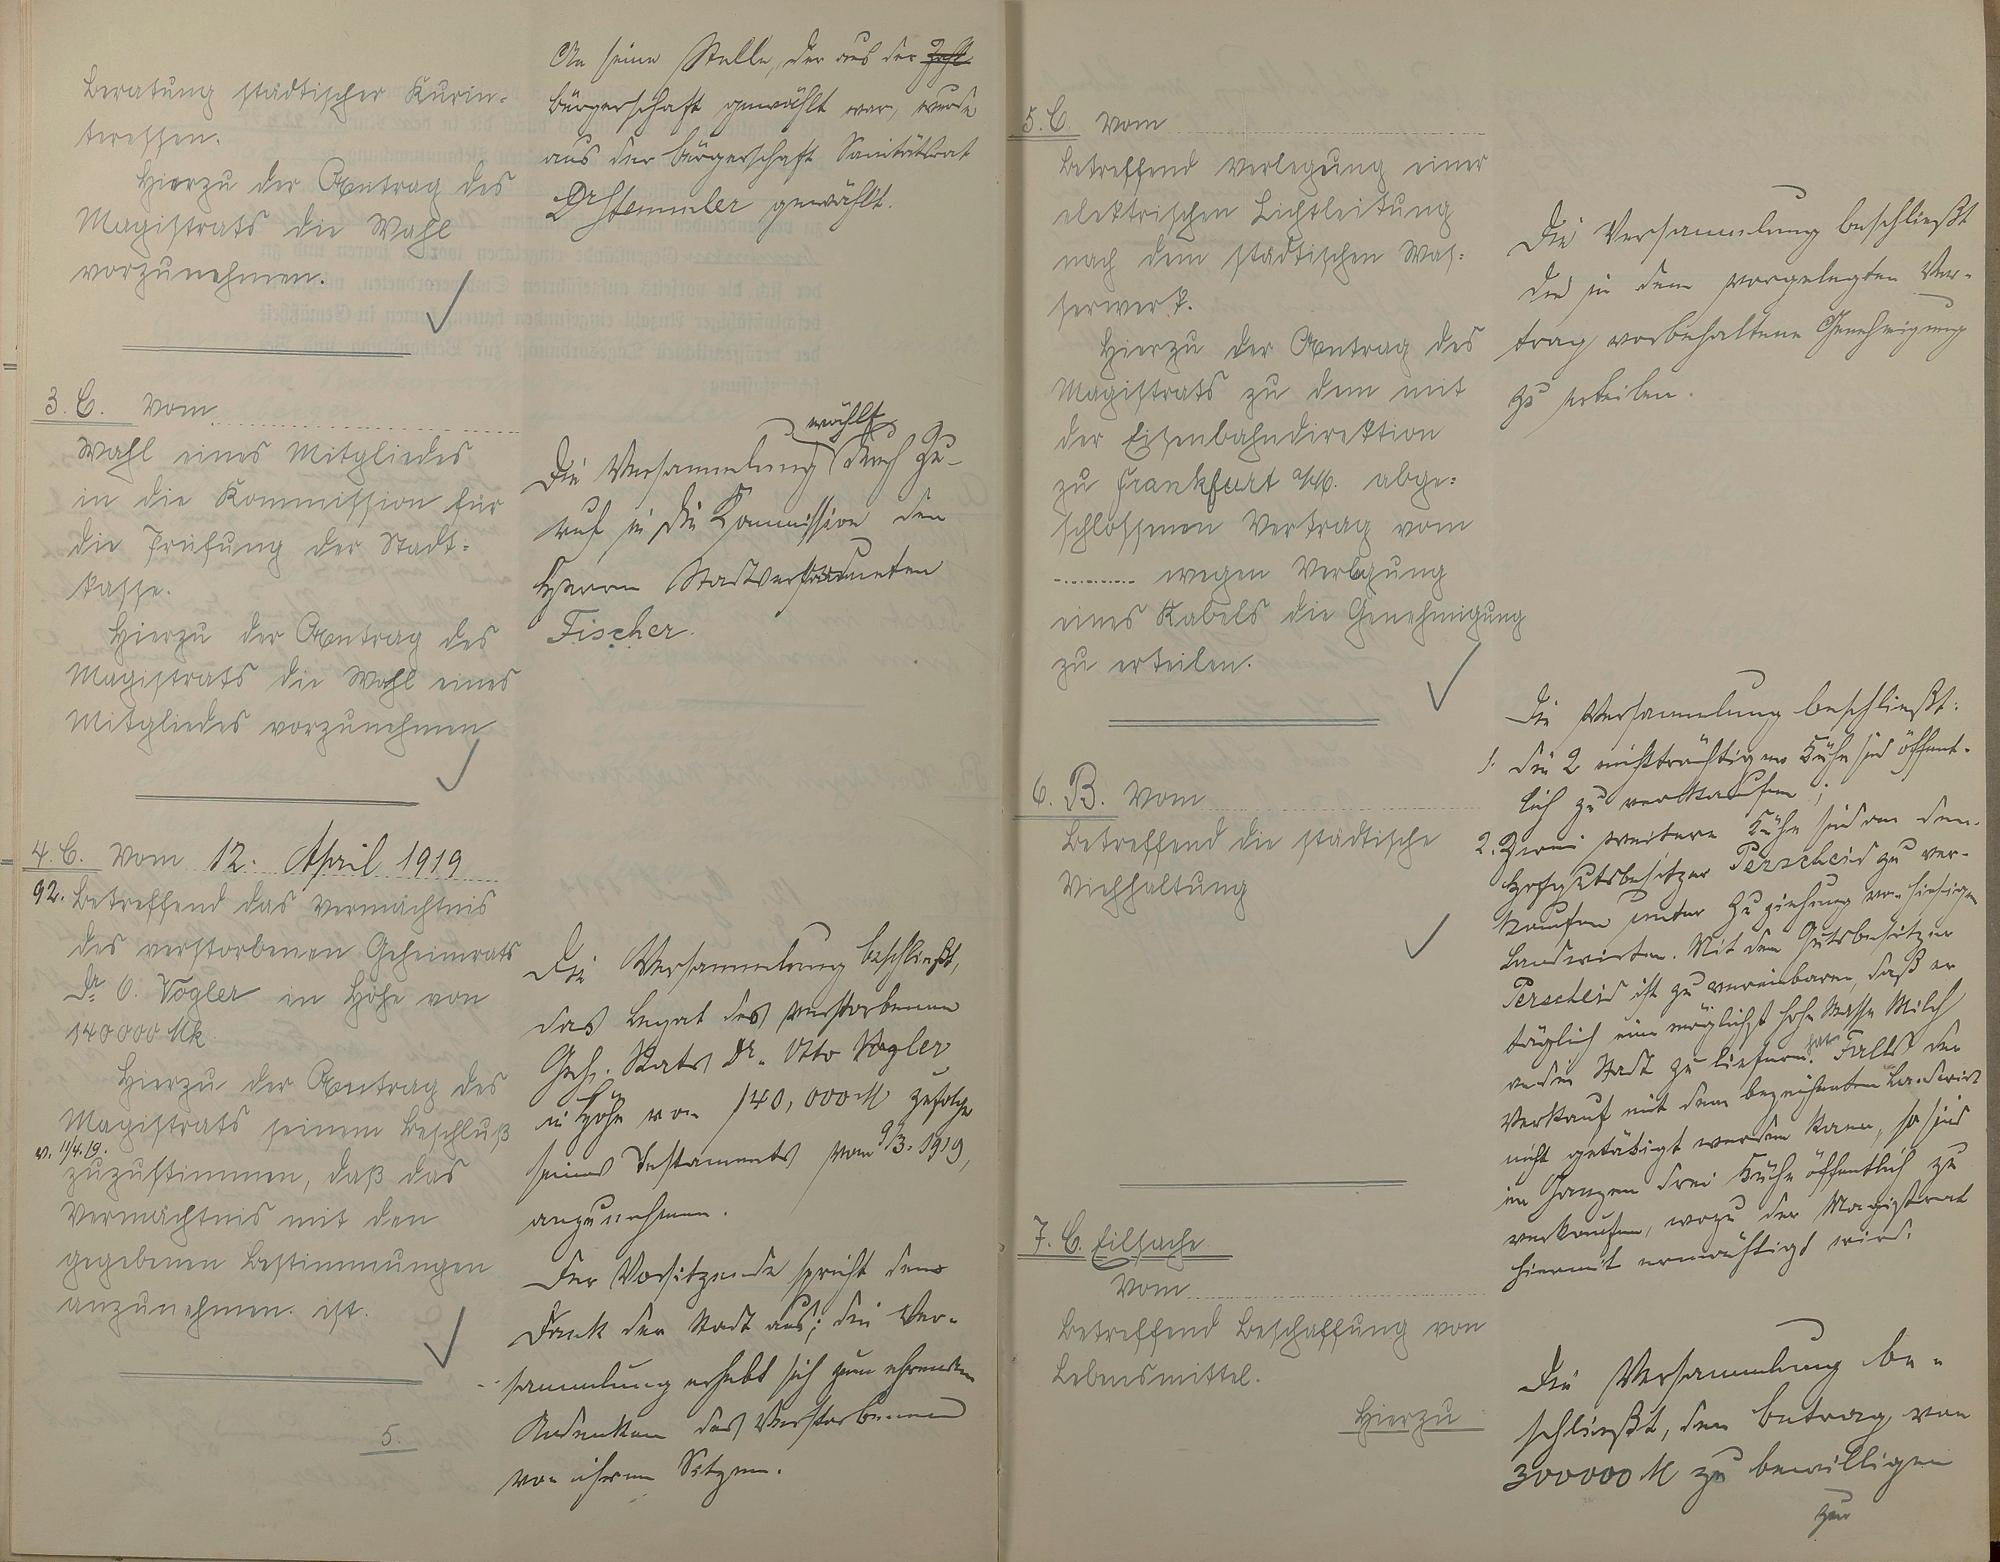 Beratung städtischer Kurin-
teressen.
Hierzu der Antrag des
Magistrats die Wahl
vorzunehmen.
3. C. Vom
Wahl eines Mitgliedes
in die Kommission für
die Prüfung der Stadt-
kasse.
Hierzu der Antrag des
Magistrats die Wahl eines
Mitgliedes vorzunehmen
4. C. Vom 12. April 1919
92. Betreffend das Vermächtnis
des verstorbenen Geheimrats
Dr. O. Vogler in Höhe von
140000 Mk
Hierzu der Antrag des
Magistrats seinem Beschluß
v. 11/4.19.
zuzustimmen, daß das
Vermächtnis mit den
gegebenen Bestimmungen
anzunehmen ist.
5.
An seine Stelle, der aus der Zahl
Bürgerschaft gewählt war, wurde
aus der Bürgerschaft Sanitätsrat
Dr Stemmler gewählt.
wählt
Die Versammlung durch Zu-
ruf in die Kommission den
Herrn Stadtverordneten
Fischer.
Die Versammlung beschließt,
das Legat des verstorbenen
Geh. Rats Dr. Otto Vogler
in Höhe von 140,000 M zufolge
seines Testaments vom 9/3. 1919,
anzunehmen.
Der Vorsitzende spricht den
Dank der Stadt aus; die Ver-
sammlung erhebt sich zum ehrenden
Andenken des Verstorbenen
von ihren Sitzen.
5. C. Vom
Betreffend Verlegung einer
elektrischen Lichtleitung
nach dem städtischen Was-
serwerk.
Hierzu der Antrag des
Magistrats zu dem mit
der Eisenbahndirektion
zu Frankfurt a/M. abge-
schlossenen Vertrag vom
wegen Verlegung
eines Kabels die Genehmigung
zu erteilen.
6. B. Vom
Betreffend die städtische
Viehhaltung
7. C. Eilsache
Vom
Betreffend Beschaffung von
Lebensmittel.
Hierzu
Die Versammlung beschließt
die in dem vorgelegten Ver-
trag vorbehaltene Genehmigung
zu erteilen.
Die Versammlung beschließt:
1. die 2 nichtträchtigen Kühe sind öffent-
lich zu verkaufen;
2. Zwei weitere Kühe sind an den
Hofgutsbesitzer Perscheid zu ver-
kaufen unter Zuziehung von hiesigen
Landwirten. Mit dem Gutsbesitzer
Perscheid ist zu vereinbaren, daß er
täglich eine möglichst hohe Masse Milch
an die Stadt zu liefern hat. Falls der
Verkauf mit dem bezeichneten Landwirt
nicht getätigt werden kann, so sind
im Ganzen drei Kühe öffentlich zu
verkaufen, wozu der Magistrat
hiermit ermächtigt wird.
Die Versammlung be-
schließt, den Betrag von
300000 M zu bewilligen
zur